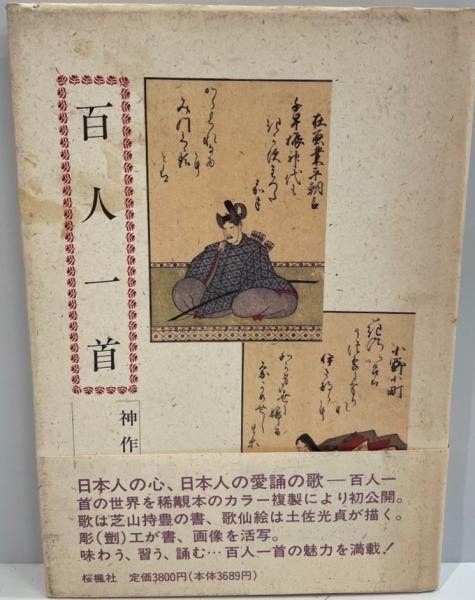 百人一首
神作
在原業平朝臣
千早振神代も
小野小町
日本人の心、日本人の愛誦の歌―百人一
首の世界を稀覯本のカラー複製により初公開。
歌は芝山持豊の書、歌仙絵は土佐光貞が描く。
彫()工が書、画像を活写。
味わう、習う、誦む…百人一首の魅力を満載!
桜楓社 定価3800円(本体3689円)